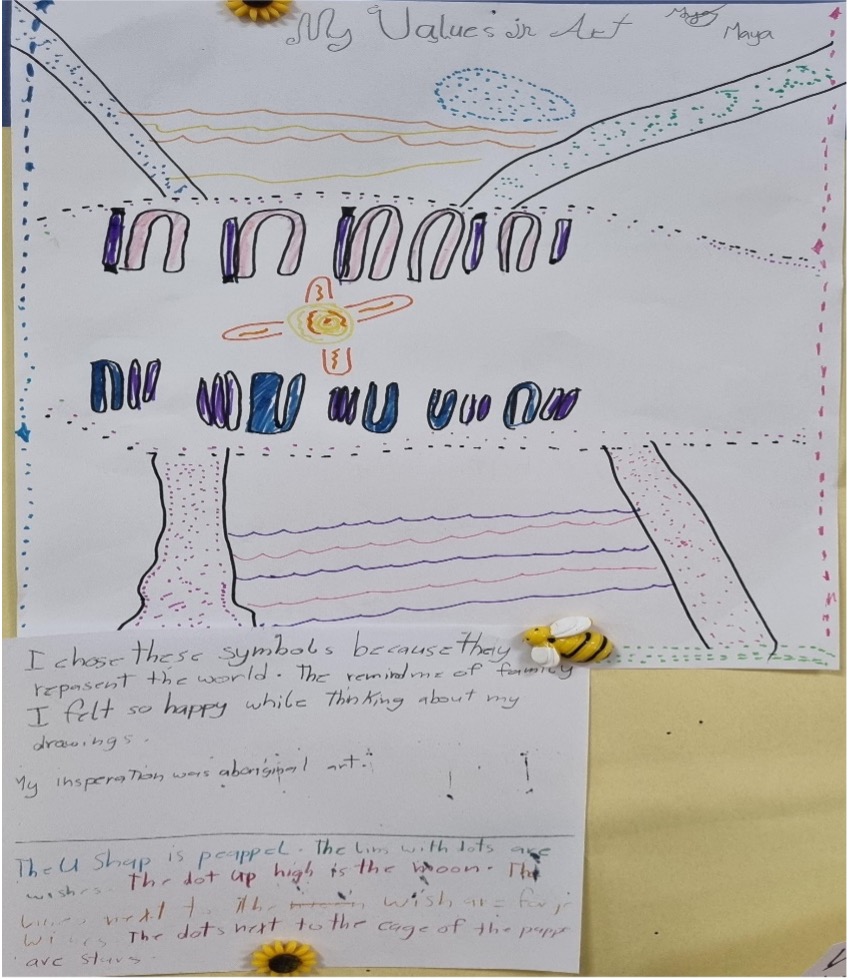 My Values in Art
Maya
Maya
I chose these symbols because they
repasent the world. The remind me of family
I felt so happy while Thinking about my
drawings.
My insperation was aboriginal art.
The U Shap is peappel. The lins with dots are
wishes. The dot up high is the moon. The
next t the wish are for
The dots next to the eage of the papp
are stars.